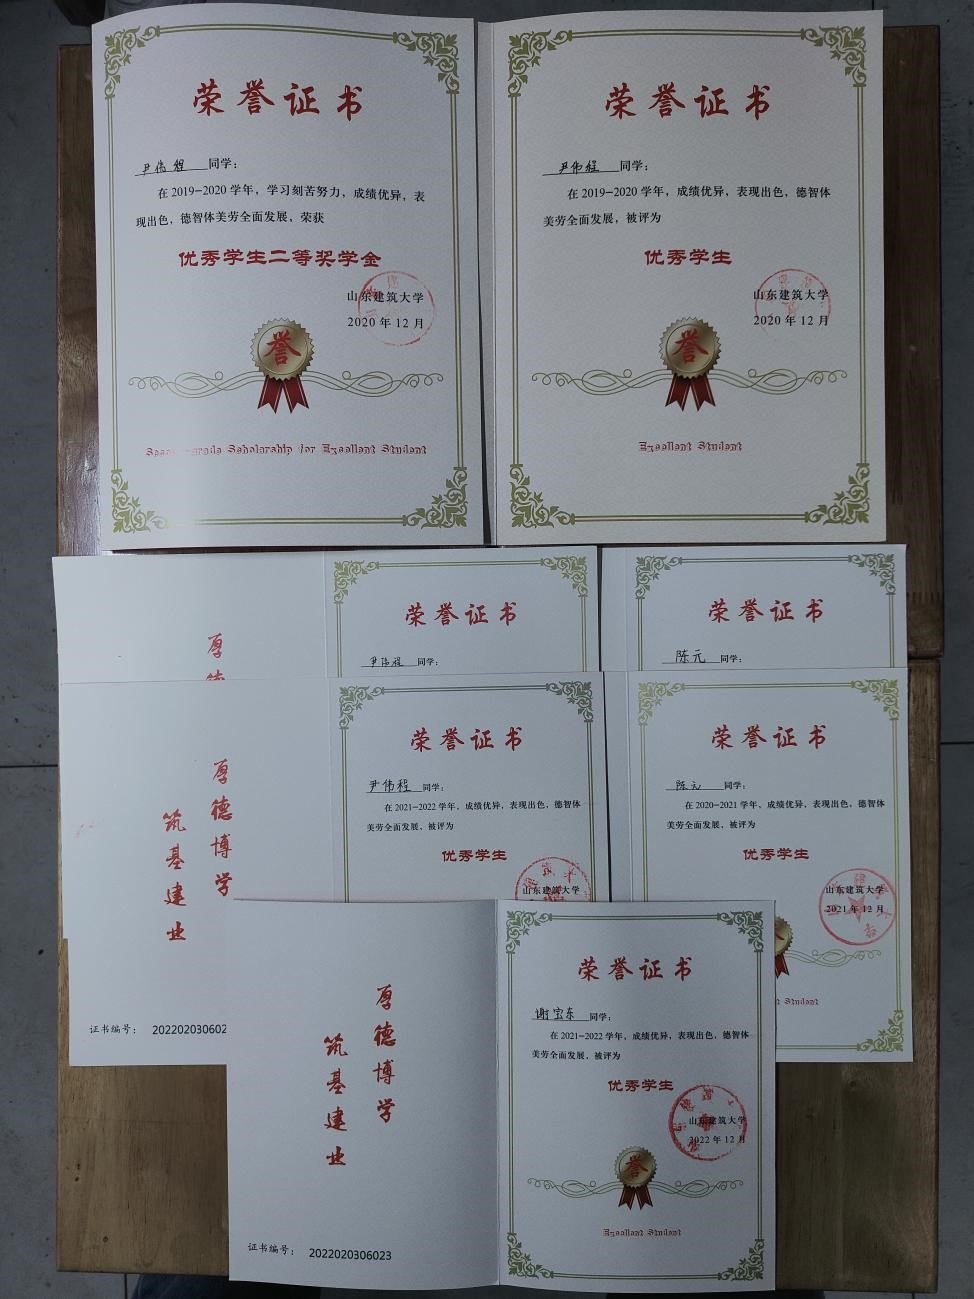 荣誉证书
尹伟程 同学：
在 2019-2020 学年，学习刻苦努力，成绩优异，表
现出色，德智体美劳全面发展，荣获
优秀学生二等奖学金
山东建筑大学
2020 年 12 月
誉
grade Scholarship for Excellent Student
荣誉证书
尹伟程 同学：
在 2019-2020 学年，成绩优异，表现出色，德智体
美劳全面发展，被评为
优秀学生
山东建筑大学
2020 年 12 月
誉
Excellent Student
厚德
荣誉证书
尹伟程 同学：
荣誉证书
陈元 同学：
厚德博学
筑基建业
证书编号： 202202030602
荣誉证书
尹伟程 同学：
在 2021-2022 学年，成绩优异，表现出色，德智体
美劳全面发展，被评为
优秀学生
山东建筑大学
荣誉证书
陈元 同学：
在 2020-2021 学年，成绩优异，表现出色，德智体
美劳全面发展，被评为
优秀学生
山东建筑大学
2021 年 12 月
Student
厚德博学
筑基建业
证书编号： 2022020306023
荣誉证书
谢宝东 同学：
在 2021-2022 学年，成绩优异，表现出色，德智体
美劳全面发展，被评为
优秀学生
山东建筑大学
2022 年 12 月
誉
Excellent Student